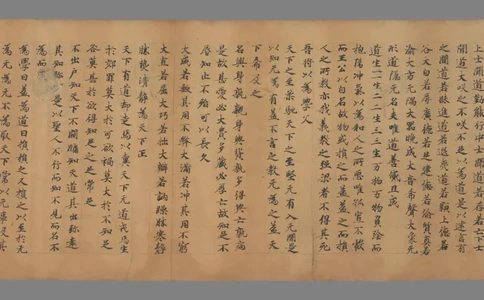 上士聞道勤能行中士聞道若存若亡下士
聞道大咲之不咲不足以為道是以建言有
之明道若昧進道若退夷道若類上德若
谷大白若辱廣德若不足建德若偷質真若
渝大方无隅大器晚成大音希聲大象无
形道隱无名夫唯道善貸且成
道生一一生二二生三三生万物万物負陰而
抱陽沖氣以為和人之所惡唯孤寡不轂
而王公以自名故物或損之而益益之而損
人之所教亦我義教之強梁者不得其死
吾將以為學父
天下之至柔馳騁天下之至堅无有入无間是
以知无為有益不言之教无為之益天
下希及之
名與身孰親身與貨孰多得與亡孰病
是故甚愛必大費多藏必厚亡故知足不
辱知止不殆可以長久
大成若缺其用不弊大滿若沖其用不窮
大直若屈大巧若拙大辯若訥躁勝寒靜
勝熱清靜為天下正
天下有道却走馬以糞天下无道戎馬生
於郊罪莫大於可欲禍莫大於不知足
咎莫甚於欲得知足之足常足
不出戶知天下不窺牖知天道其出弥遠
其知弥近是以聖人不行而知不見而名不
為而成
為學日益為道日損損之又損之以至於无
為无為无不為取天下常以无事及其